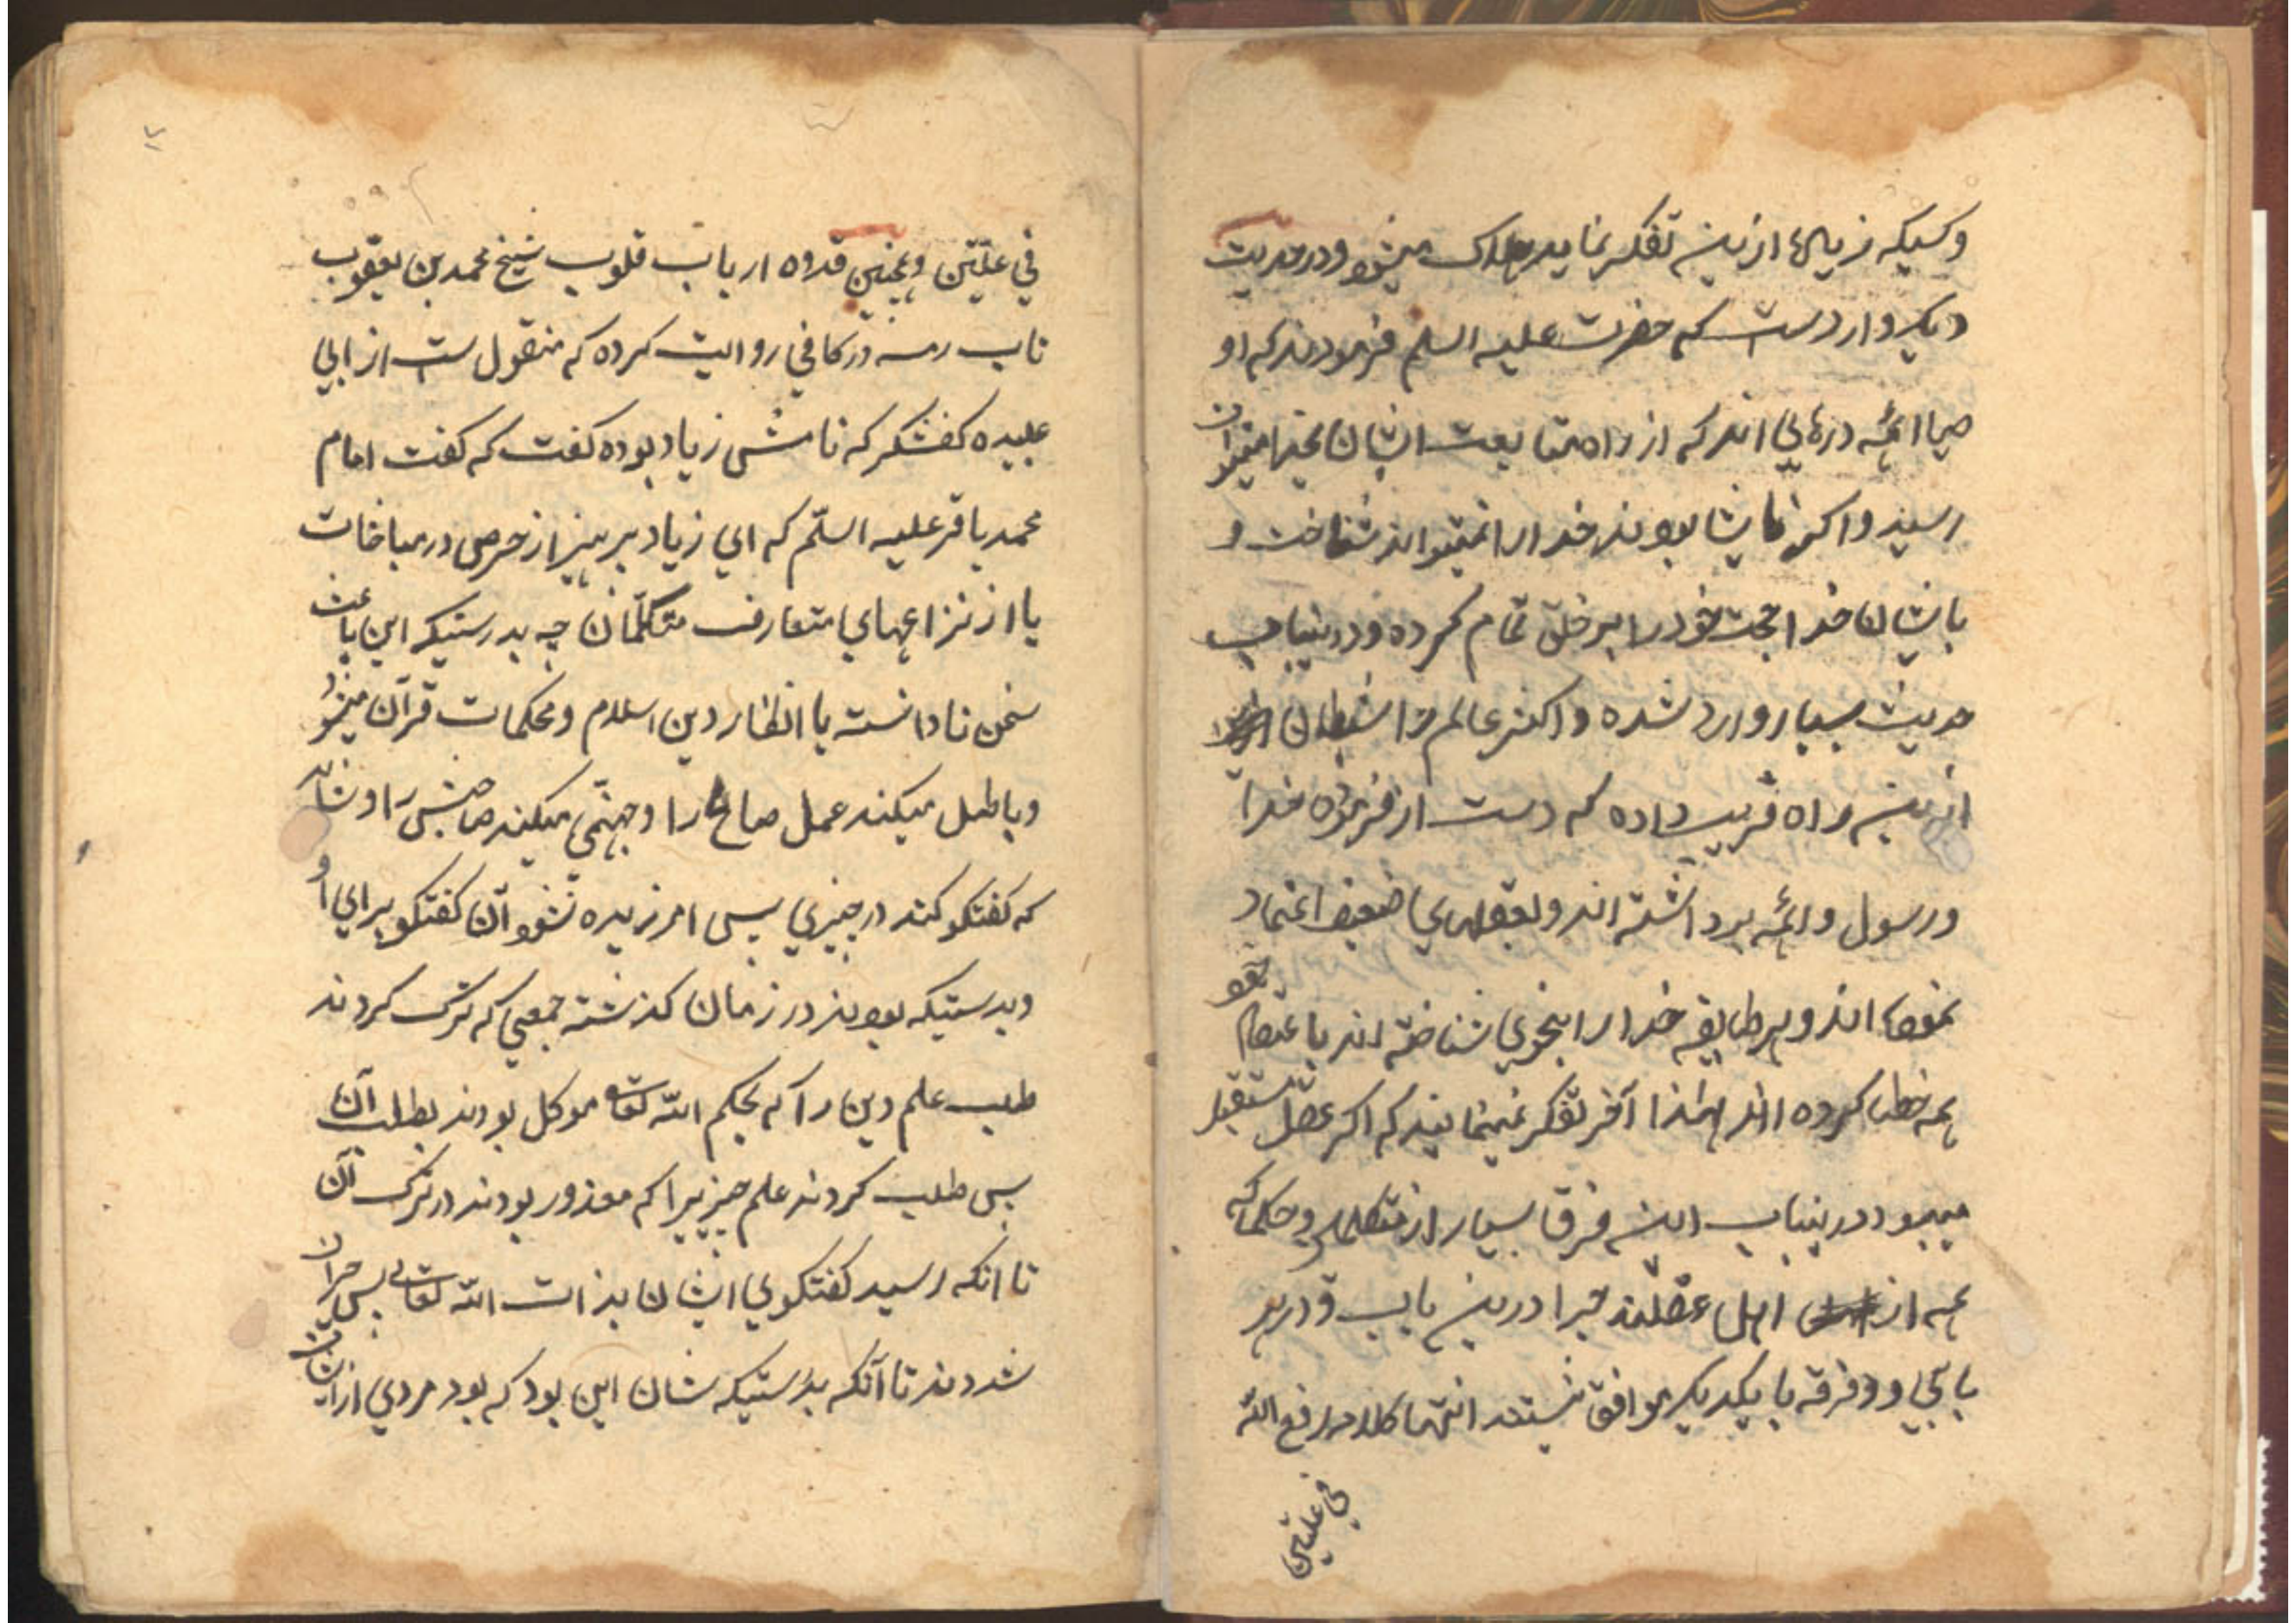 وکسیکه زیاده ازین تفکر نماید هلاک میشود ودر حدیث
دیکر وارد است که حضرت علیه السلم فرمودند که او
صیا ائمه درهایی اند که از راه متابعت ایشان بخدا میتوان
رسید واکر نه ایشان بودند خدا را نمیتوانند شناخت و
بایشان خدا حجت خود را بر خلق تمام کرده ودرینباب
حدیث بسیار وارد شده واکثر عالم را شیطان
ازین راه فریب داده که دست از فرموده خدا
ورسول وائمه برداشته اند وبعقلهای ضعیف اعتماد
نموده اند وهر طایفه خدا را بنحوی شناخته اند باعتقاد خود
همه خطا کرده اند لهذا آخر تفکر نمینمایند که اکر عقل مستقل
میبود درینباب این فرق بسیار از متکلمان وحکما که
همه از اهل عقلند چرا درین باب ودر هر
بابی دو فرقه با یکدیکر موافق نیستند انتهی کلامه رفع الله
في علیین
۷
في علّیّین وهمچنین قدوه ارباب قلوب شیخ محمد بن یعقوب
ناب رسه در کافي روایت کرده که منقول ست از ابي
عبیده کفشکر که نامش زیاد بوده کفت که کفت امام
محمد باقر علیه السلّم که اي زیاد بپرهیز از حرص در مباحثات
یا از نزاعهاي متعارف متکلّمان چه بدرستیکه این باعث
سخن نادانسته یا انظار دین اسلام ومحکمات قرآن میشود
وباطل میکند عمل صالح را وجهنّمي میکند صاحبش را وشاید
که کفتکو کند در چیزي پس امرزیده نشود آن کفتکو براي او
وبدرستیکه بودند در زمان کذشته جمعي که ترک کردند
طلب علم دین را که بحکم الله تعالی موکل بودند بطلب آن
پس طلب کردند علم چیزیرا که معذور بودند در ترک آن
تا انکه رسید کفتکوي ایشان بذات الله تعالی پس حیران
شدند تا آنکه بدرستیکه شان این بود که بود مردي از ایشان